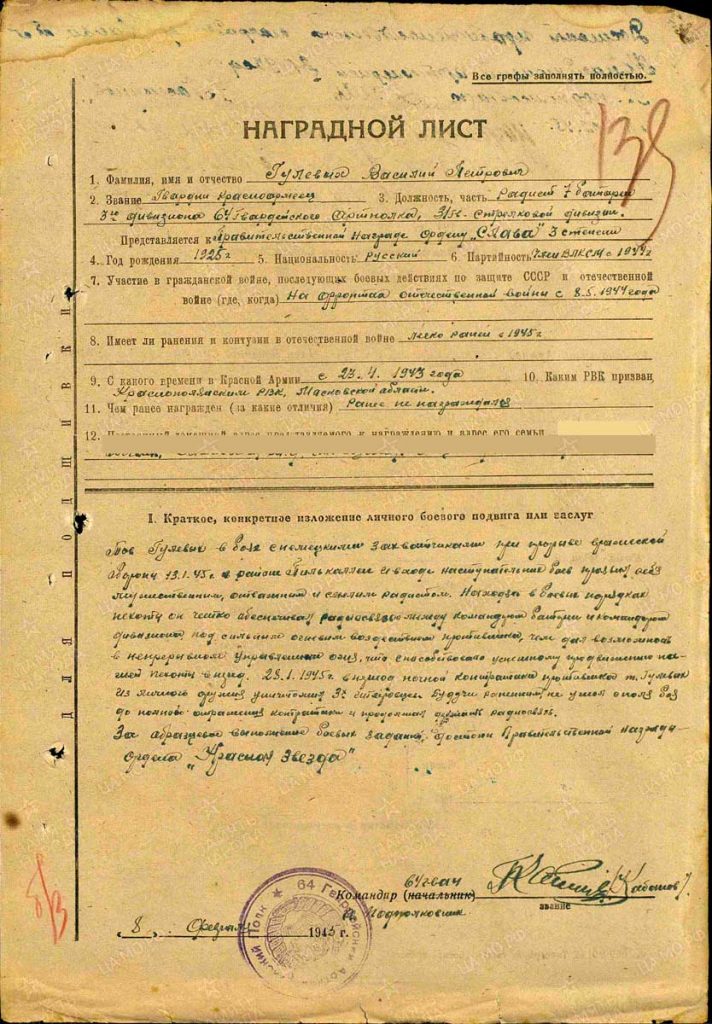 Все графы заполнять полностью.
НАГРАДНОЙ ЛИСТ
1. Фамилия, имя и отчество Гулевых Василий Петрович
2. Звание Гвардии Красноармеец 3. Должность, часть Радист 7 батареи
3го дивизиона 64 Гвардейского Артполка, стрелковой дивизии.
Представляется к Правительственной Награде Ордену „Слава" 3 степени
4. Год рождения 1925г 5. Национальность Русский 6. Партийность Член ВЛКСМ с 1944г
7. Участие в гражданской войне, последующих боевых действиях по защите СССР и отечественной
войне (где, когда) На фронтах отечественной войны с 8.5.1944 года
8. Имеет ли ранения и контузии в отечественной войне легко ранен 1945г
9. С какого времени в Красной Армии с 23.4.1943 года 10. Каким РВК призван
Краснополянским РВК, Московской области.
11. Чем ранее награжден (за какие отличия) Ранее не награждался
12.
I. Краткое, конкретное изложение личного боевого подвига или заслуг
Тов Гулевых в боях с немецкими захватчиками при прорыве вражеской
обороны 13.1.45г в районе Пилькаллен и в ходе наступательных боев проявил себя
мужественным, отважным и смелым радистом. Находясь в боевых порядках
пехоты он четко обеспечивал радиосвязь между командиром батареи и командиром
дивизиона под сильным огневым воздействием противника, чем дал возможность
в непрерывном управлении огня, что способствовало успешному продвижению на-
шей пехоты вперед. 28.1.1945г в период ночной контратаки противника т. Гулевых
из личного оружия уничтожил 3х гитлеровцев. Будучи раненным не ушел с поля боя
до полного отражения контратаки и продолжал держать радиосвязь.
За образцовое выполнение боевых заданий, достоин Правительственной Награды
Ордена „Красная Звезда"
64 гвап
Командир (начальник) (Кабатов)
Подполковник звание
8 Февраля 1945 г.
64 Гвардейский Полк
ДЛЯ ПОДШИВКИ